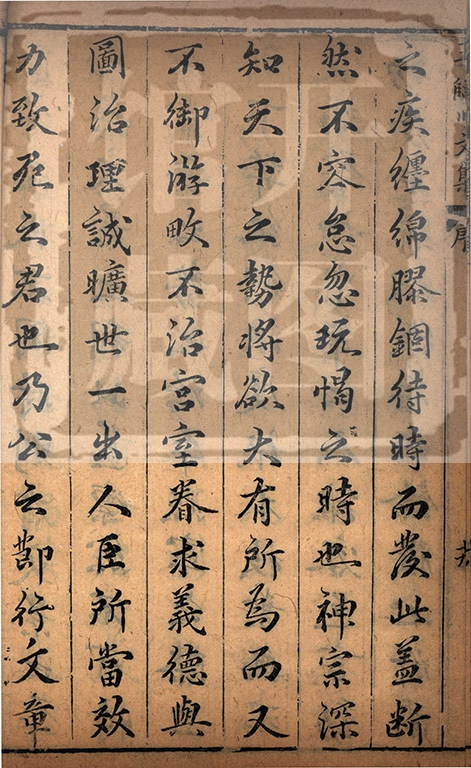 文集
之疾纏綿膠錮待時而發此蓋断
然不容怠忽玩愒之時也神宗深
知天下之勢將欲大有所為而又
不御游畋不治宮室眷求義德與
圖治理誠曠世一出人臣所當效
力致死之君也乃公之莭行文章